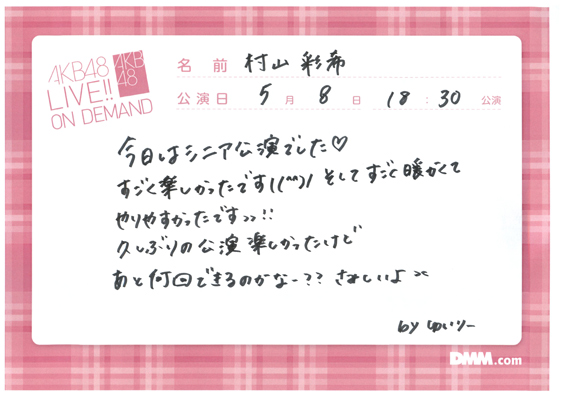 AKB48
LIVE!!
ON DEMAND
AKB
48
名前 村山 彩希
公演日 5月 8日 18:30 公演
今日はシニア公演でした♡
すごく楽しかったです!(^^)! そしてすごく暖かくて
やりやすかったです>>!!
久しぶりの公演 楽しかったけど
あと何回できるのかなー?? さみしいよ
by ゆいりー
DMM.com